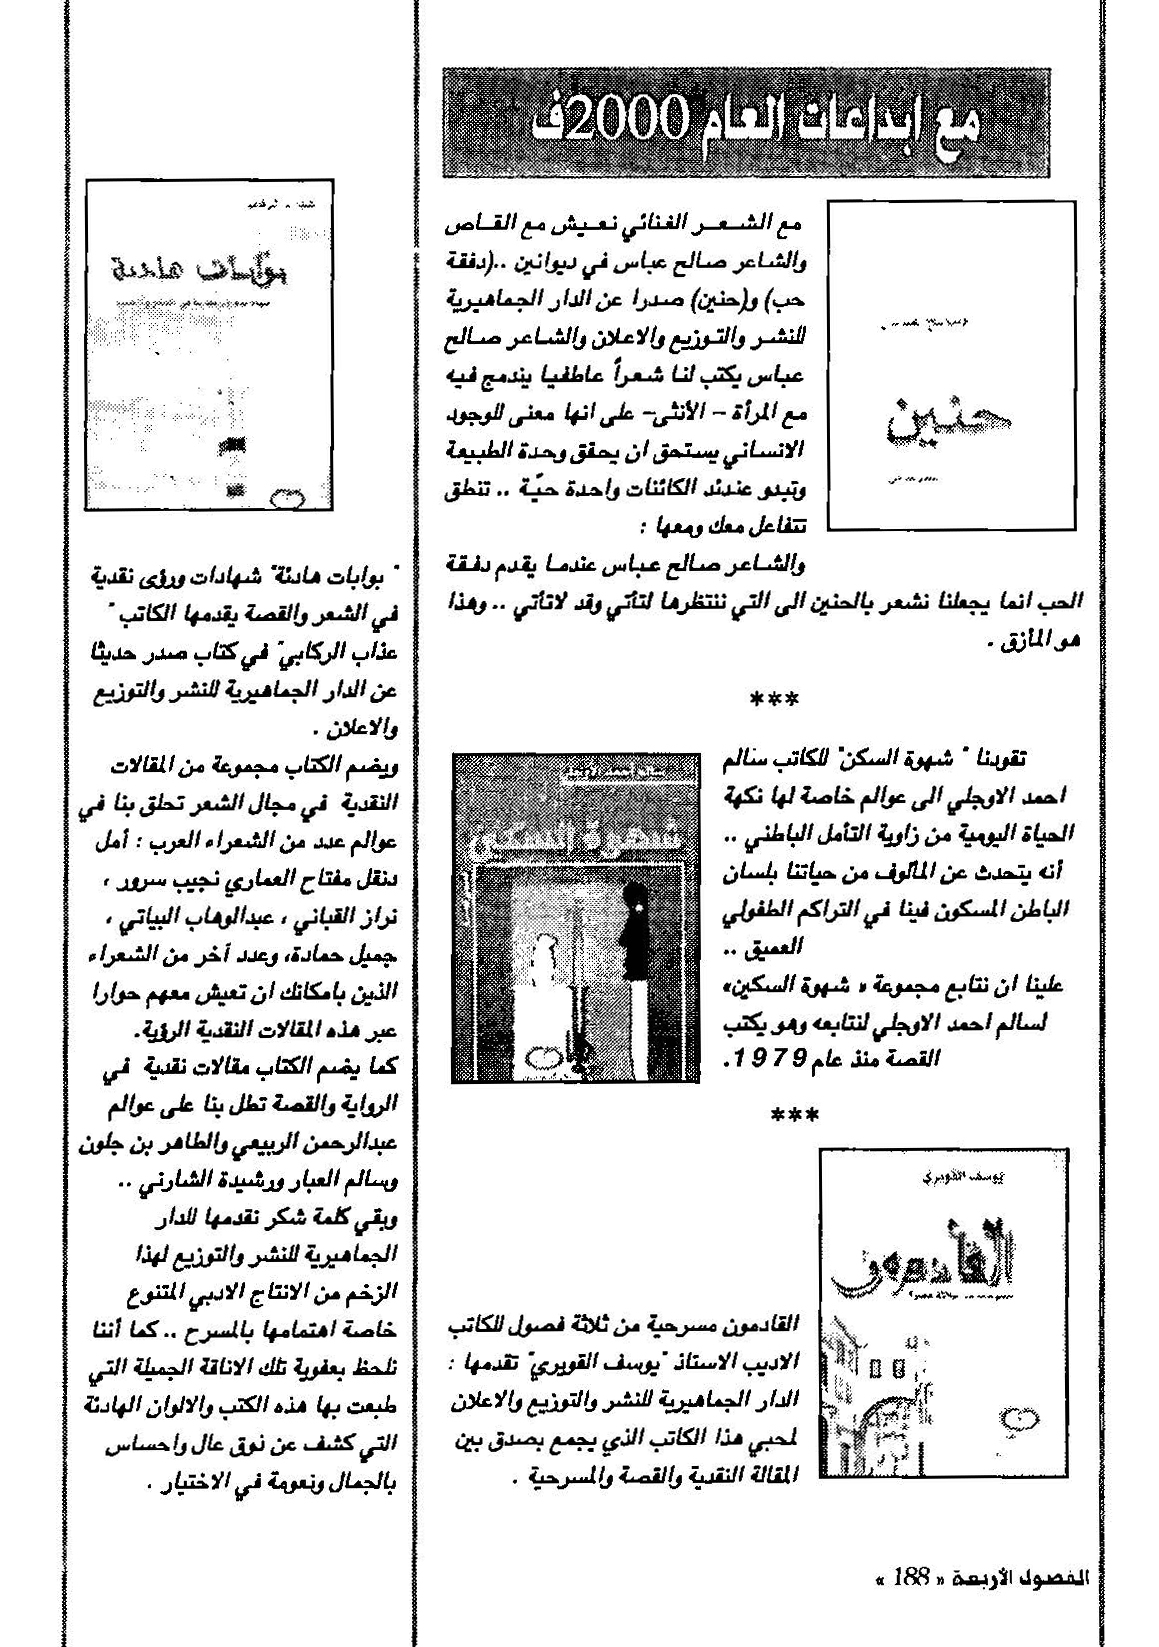 مع ابداعات العام 2000ف
حنين
مع الشعر الغنائي نعيش مع القاص
والشاعر صالح عباس في ديوانين ..(دفقة
حب) و(حنين) صدرا عن الدار الجماهيرية
للنشر والتوزيع والاعلان والشاعر صالح
عباس يكتب لنا شعراً عاطفيا يندمج فيه
مع المرأة - الأنثى- على انها معنى للوجود
الانساني يستحق ان يحقق وحدة الطبيعة
وتبدو عندئذ الكائنات واحدة حيّة .. تنطق
تتفاعل معك ومعها :
والشاعر صالح عباس عندما يقدم دفقة
الحب انما يجعلنا نشعر بالحنين الى التي ننتظرها لتأتي وقد لاتأتي .. وهذا
هو المأزق .
***
تقودنا " شهوة السكن" للكاتب سالم
احمد الاوجلي الى عوالم خاصة لها نكهة
الحياة اليومية من زاوية التأمل الباطني ..
أنه يتحدث عن المألوف من حياتنا بلسان
الباطن المسكون فينا في التراكم الطفولي
العميق ..
علينا ان نتابع مجموعة « شهوة السكين»
لسالم احمد الاوجلي لنتابعه وهو يكتب
القصة منذ عام 1979.
سالم أحمد الاوجلي
شهوة السكين
***
يوسف القويري
القادمون
القادمون مسرحية من ثلاثة فصول للكاتب
الاديب الاستاذ "يوسف القويري" تقدمها :
الدار الجماهيرية للنشر والتوزيع والاعلان
لمحبي هذا الكاتب الذي يجمع بصدق بين
المقالة النقدية والقصة والمسرحية .
بوابات هادئة
" بوابات هادئة" شهادات ورؤى نقدية
في الشعر والقصة يقدمها الكاتب "
عذاب الركابي" في كتاب صدر حديثا
عن الدار الجماهيرية للنشر والتوزيع
والاعلان .
ويضم الكتاب مجموعة من المقالات
النقدية في مجال الشعر تحلق بنا في
عوالم عدد من الشعراء العرب : أمل
دنقل مفتاح العماري نجيب سرور ،
نزار القباني ، عبدالوهاب البياتي ،
جميل حمادة، وعدد آخر من الشعراء
الذين بامكانك ان تعيش معهم حوارا
عبر هذه المقالات النقدية الرؤية.
كما يضم الكتاب مقالات نقدية في
الرواية والقصة تطل بنا على عوالم
عبدالرحمن الربيعي والطاهر بن جلون
وسالم العبار ورشيدة الشارني ..
وبقي كلمة شكر نقدمها للدار
الجماهيرية للنشر والتوزيع لهذا
الزخم من الانتاج الادبي المتنوع
خاصة اهتمامها بالمسرح .. كما أننا
نلحظ بعفوية تلك الاناقة الجميلة التي
طبعت بها هذه الكتب والالوان الهادئة
التي كشف عن ذوق عال واحساس
بالجمال ونعومة في الاختيار .
الفصول الأربعة « 188 »